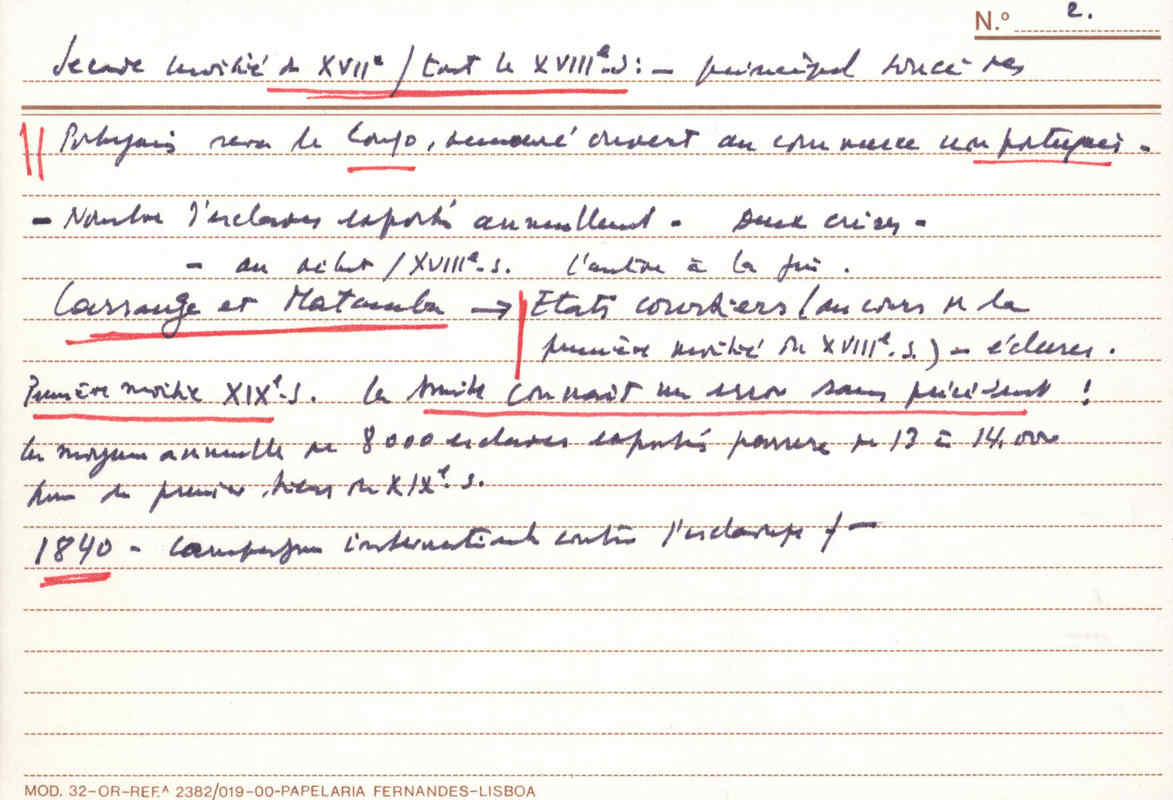 N.º 2.
Seconde moitié du XVIIe / tout le XVIIIe.s: – principal souci des
Portugais sera le Congo, demeuré ouvert au commerce non portugais –
– Nombre d'esclaves exportés annuellement – Deux crises –
– au début / XVIIIe.s. l'autre à la fin.
Cassange et Matamba → Etats courtiers (au cours de la
première moitié du XVIIIe.s.) – esclaves.
Première moitié XIXe.s. la traite connait un essor sans précédent !
La moyenne annuelle de 8000 esclaves exportés passera de 13 à 14.000
du premier tiers du XIXe.s.
1840 – Campagne internationale contre l'esclavage
MOD. 32-OR-REF.ᴬ 2382/019-00-PAPELARIA FERNANDES-LISBOA